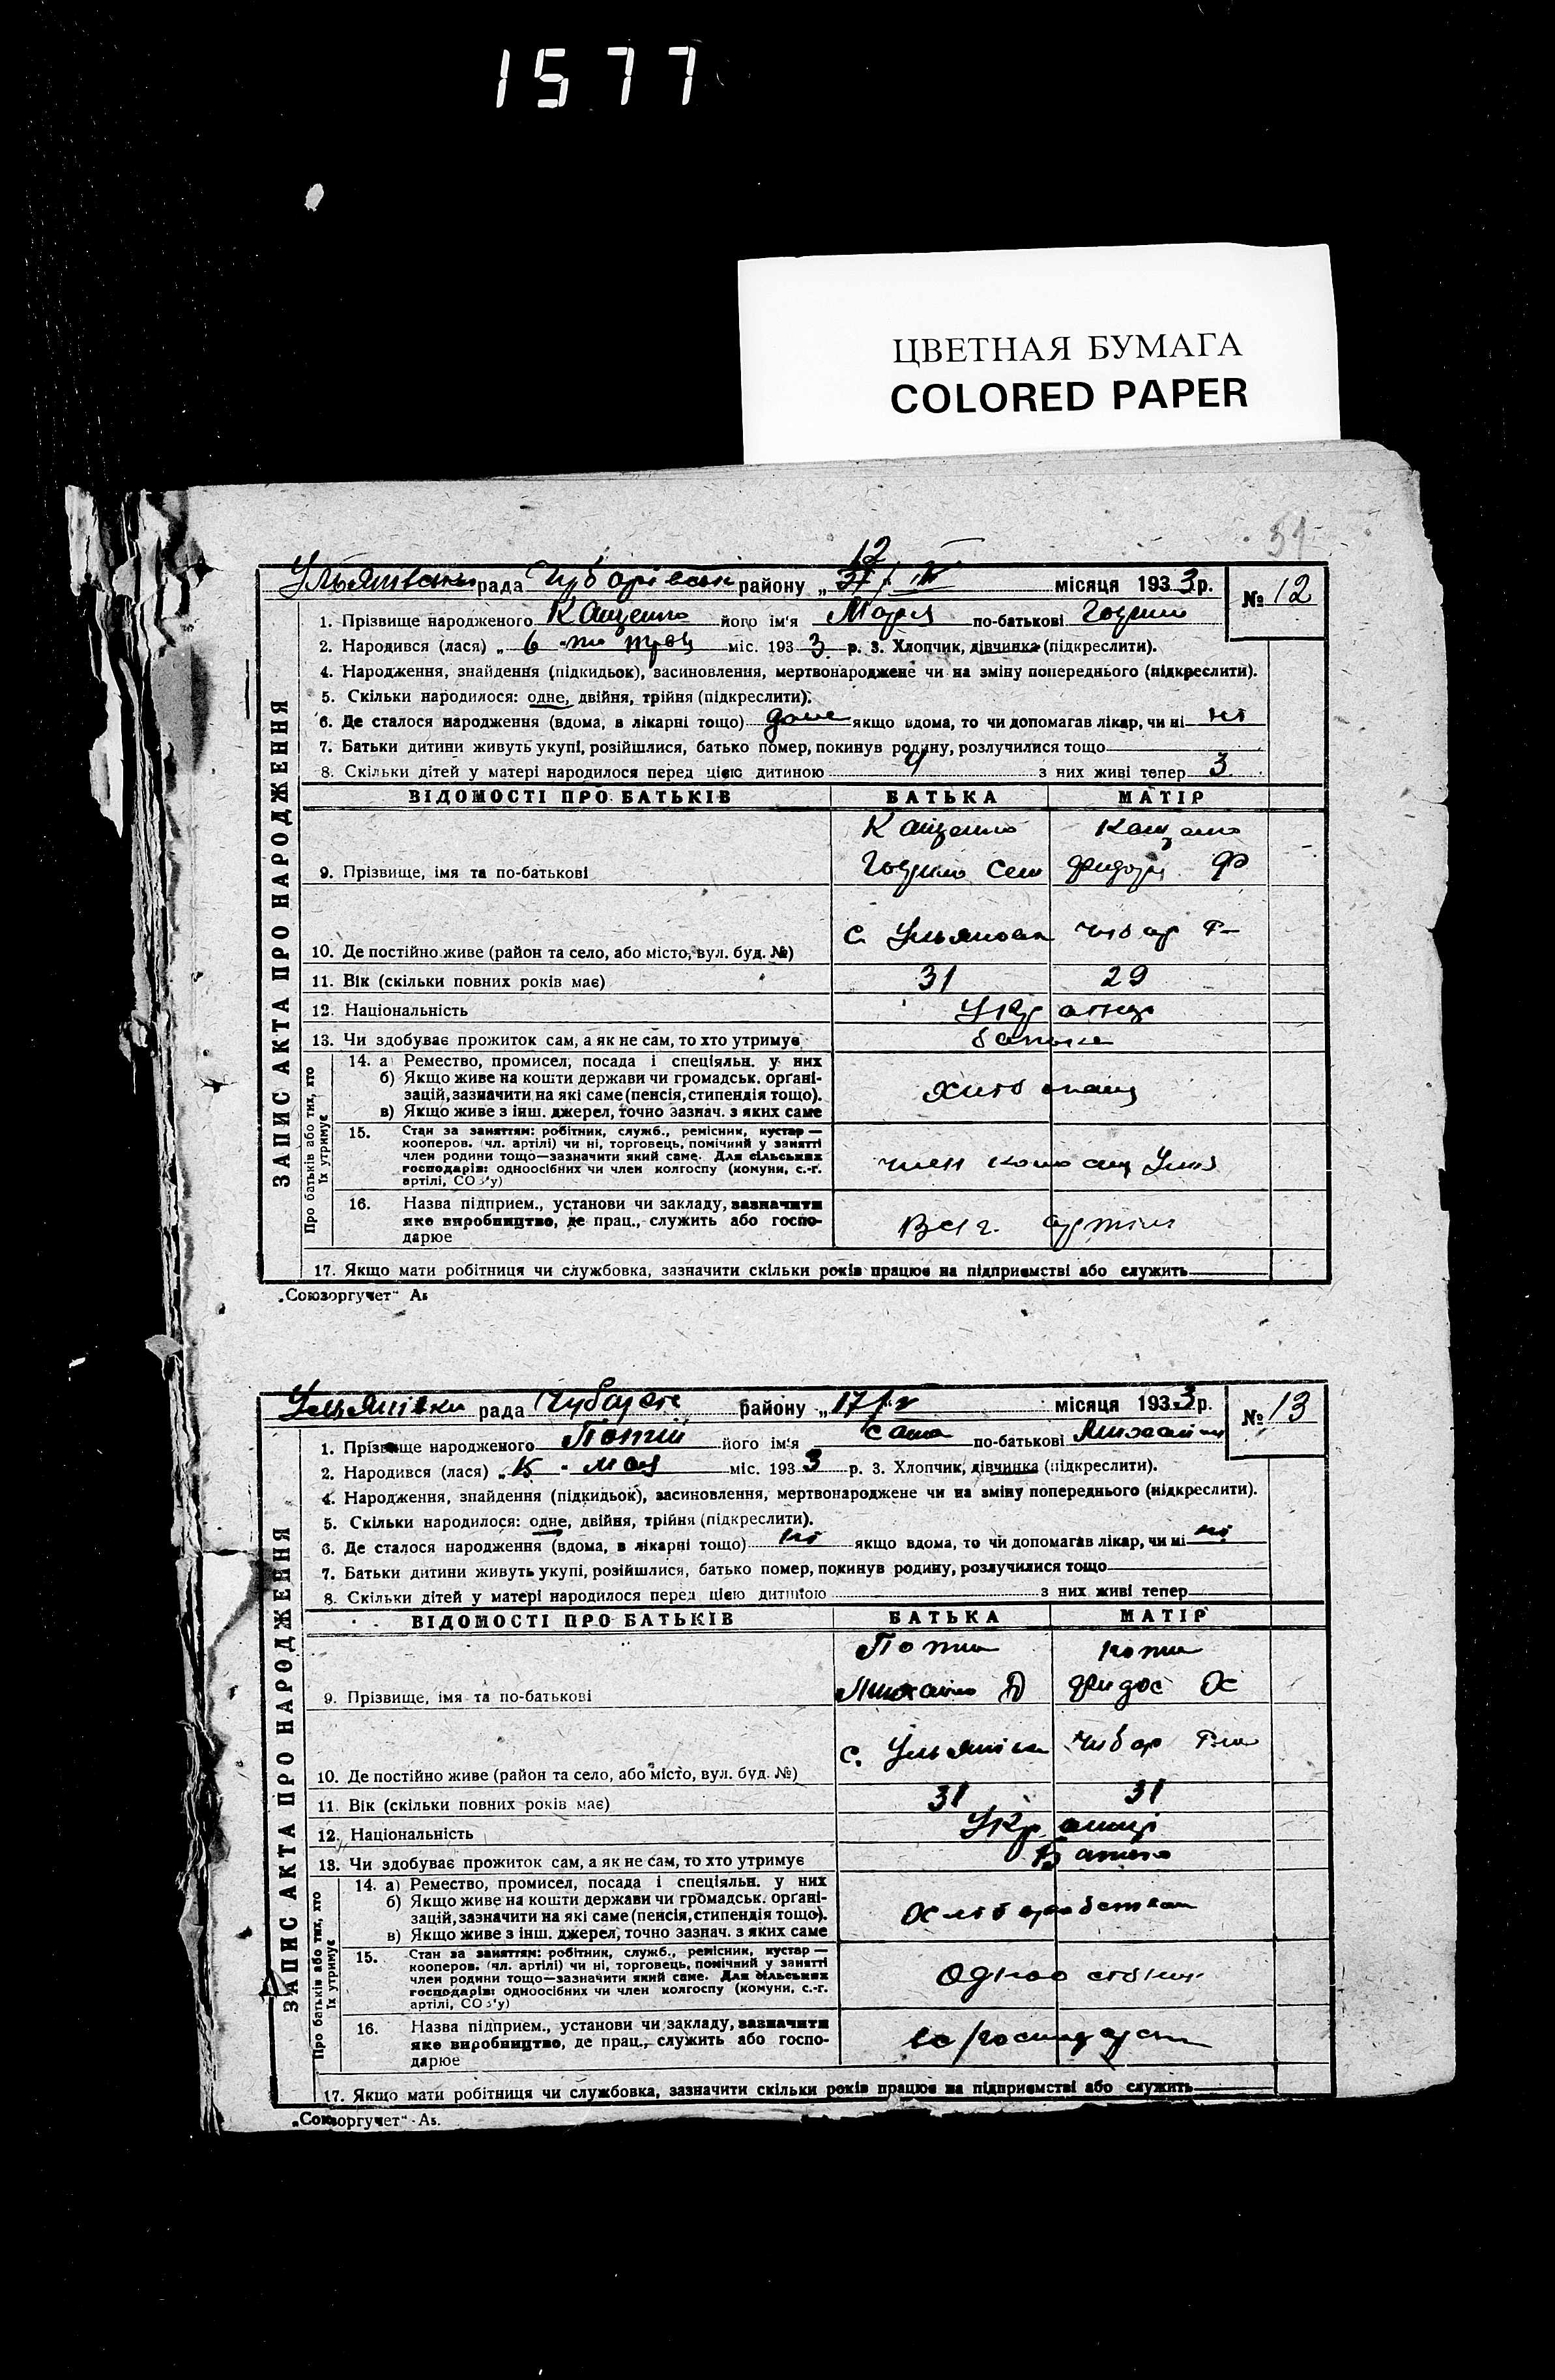 1577
ЦВЕТНАЯ БУМАГА
COLORED PAPER
54
12
рада Чубарівськ району „ 31/ IV місяця 1933 р. № 12
1. Прізвище народженого Кащенко його ім'я Марія по-батькові
2. Народився (лася) „ 6 міс. 1933 р. 3. Хлопчик, дівчинка (підкреслити).
4. Народження, знайдення (підкидьок), засиновлення, мертвонароджене чи на зміну попереднього (підкреслити).
5. Скільки народилося: одне, двійня, трійня (підкреслити).
6. Де сталося народження (вдома, в лікарні тощо) дома якщо вдома, то чи допомагав лікар, чи ні ні
7. Батьки дитини живуть укупі, розійшлися, батько помер, покинув родину, розлучилися тощо
8. Скільки дітей у матері народилося перед цією дитиною 4 з них живі тепер 3
ЗАПИС АКТА ПРО НАРОДЖЕННЯ
ВІДОМОСТІ ПРО БАТЬКІВ БАТЬКА МАТІР
Кащенко Кащенко
9. Прізвище, імя та по-батькові
10. Де постійно живе (район та село, або місто, вул. буд. №) с. Ульяновка Чубар
11. Вік (скільки повних років має) 31 29
12. Національність
13. Чи здобуває прожиток сам, а як не сам, то хто утримує батько
Про батьків або тих, хто їх утримує
14. а) Ремество, промисел, посада і спеціяльн. у них
б) Якщо живе на кошти держави чи громадськ. органі-
зацій, зазначити на які саме (пенсія, стипендія тощо).
в) Якщо живе з інш. джерел, точно зазнач. з яких саме
15. Стан за заняттям: робітник, служб., ремісник, кустар —
кооперов. (чл. артілі) чи ні, торговець, помічний у занятті
член родини тощо—зазначити який саме. Для сільських
господарів: одноосібних чи член колгоспу (комуни, с.-г.
артілі, СОЗ'у)
член
16. Назва підприєм., установи чи закладу, зазначити
яке виробництво, де прац., служить або госпо-
дарює
артіль
17. Якщо мати робітниця чи службовка, зазначити скільки років працює на підприємстві або служить
„Союзоргучет“ А₅
рада району „ 17/V місяця 1933 р. № 13
1. Прізвище народженого Потій його ім'я Саша по-батькові
2. Народився (лася) „ 15 - мая міс. 1933 р. 3. Хлопчик, дівчинка (підкреслити).
4. Народження, знайдення (підкидьок), засиновлення, мертвонароджене чи на зміну попереднього (підкреслити).
5. Скільки народилося: одне, двійня, трійня (підкреслити).
6. Де сталося народження (вдома, в лікарні тощо) ні якщо вдома, то чи допомагав лікар, чи ні ні
7. Батьки дитини живуть укупі, розійшлися, батько помер, покинув родину, розлучилися тощо
8. Скільки дітей у матері народилося перед цією дитиною з них живі тепер
ЗАПИС АКТА ПРО НАРОДЖЕННЯ
ВІДОМОСТІ ПРО БАТЬКІВ БАТЬКА МАТІР
9. Прізвище, імя та по-батькові Михайло
10. Де постійно живе (район та село, або місто, вул. буд. №) с. Чубар
11. Вік (скільки повних років має) 31 31
12. Національність
13. Чи здобуває прожиток сам, а як не сам, то хто утримує Батько
Про батьків або тих, хто їх утримує
14. а) Ремество, промисел, посада і спеціяльн. у них
б) Якщо живе на кошти держави чи громадськ. органі-
зацій, зазначити на які саме (пенсія, стипендія тощо).
в) Якщо живе з інш. джерел, точно зазнач. з яких саме
15. Стан за заняттям: робітник, служб., ремісник, кустар —
кооперов. (чл. артілі) чи ні, торговець, помічний у занятті
член родини тощо—зазначити який саме. Для сільських
господарів: одноосібних чи член колгоспу (комуни, с.-г.
артілі, СОЗ'у)
16. Назва підприєм., установи чи закладу, зазначити
яке виробництво, де прац., служить або госпо-
дарює
17. Якщо мати робітниця чи службовка, зазначити скільки років працює на підприємстві або служить
„Союзоргучет“ А₅.